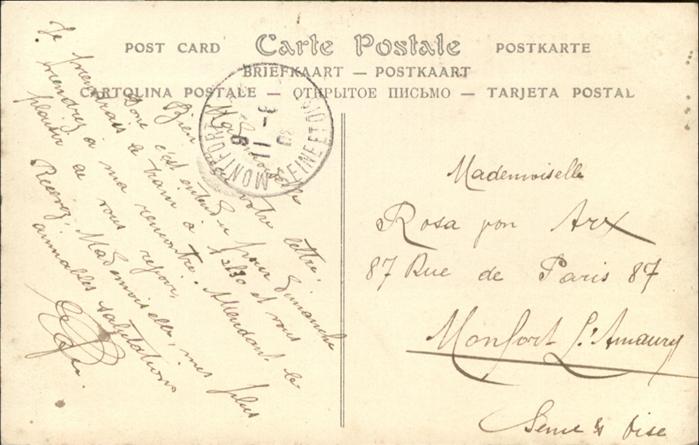 POST CARD Carte Postale POSTKARTE
BRIEFKAART — POSTKAART
CARTOLINA POSTALE — ОТКРЫТОЕ ПИСЬМО — TARJETA POSTAL
MONTFORT
SEINE ET OISE
Mademoiselle
Bien votre lettre.
Donc c'est entendu pour Dimanche
Je prendrais le train à et vous
viendrez à ma rencontre. Attendant le
plaisir de vous revoir,
Recevez, Mademoiselle, mes plus
aimables salutations
Mademoiselle
Rosa von Arx
87 Rue de Paris 87
Monfort L'Amaury
Seine et Oise